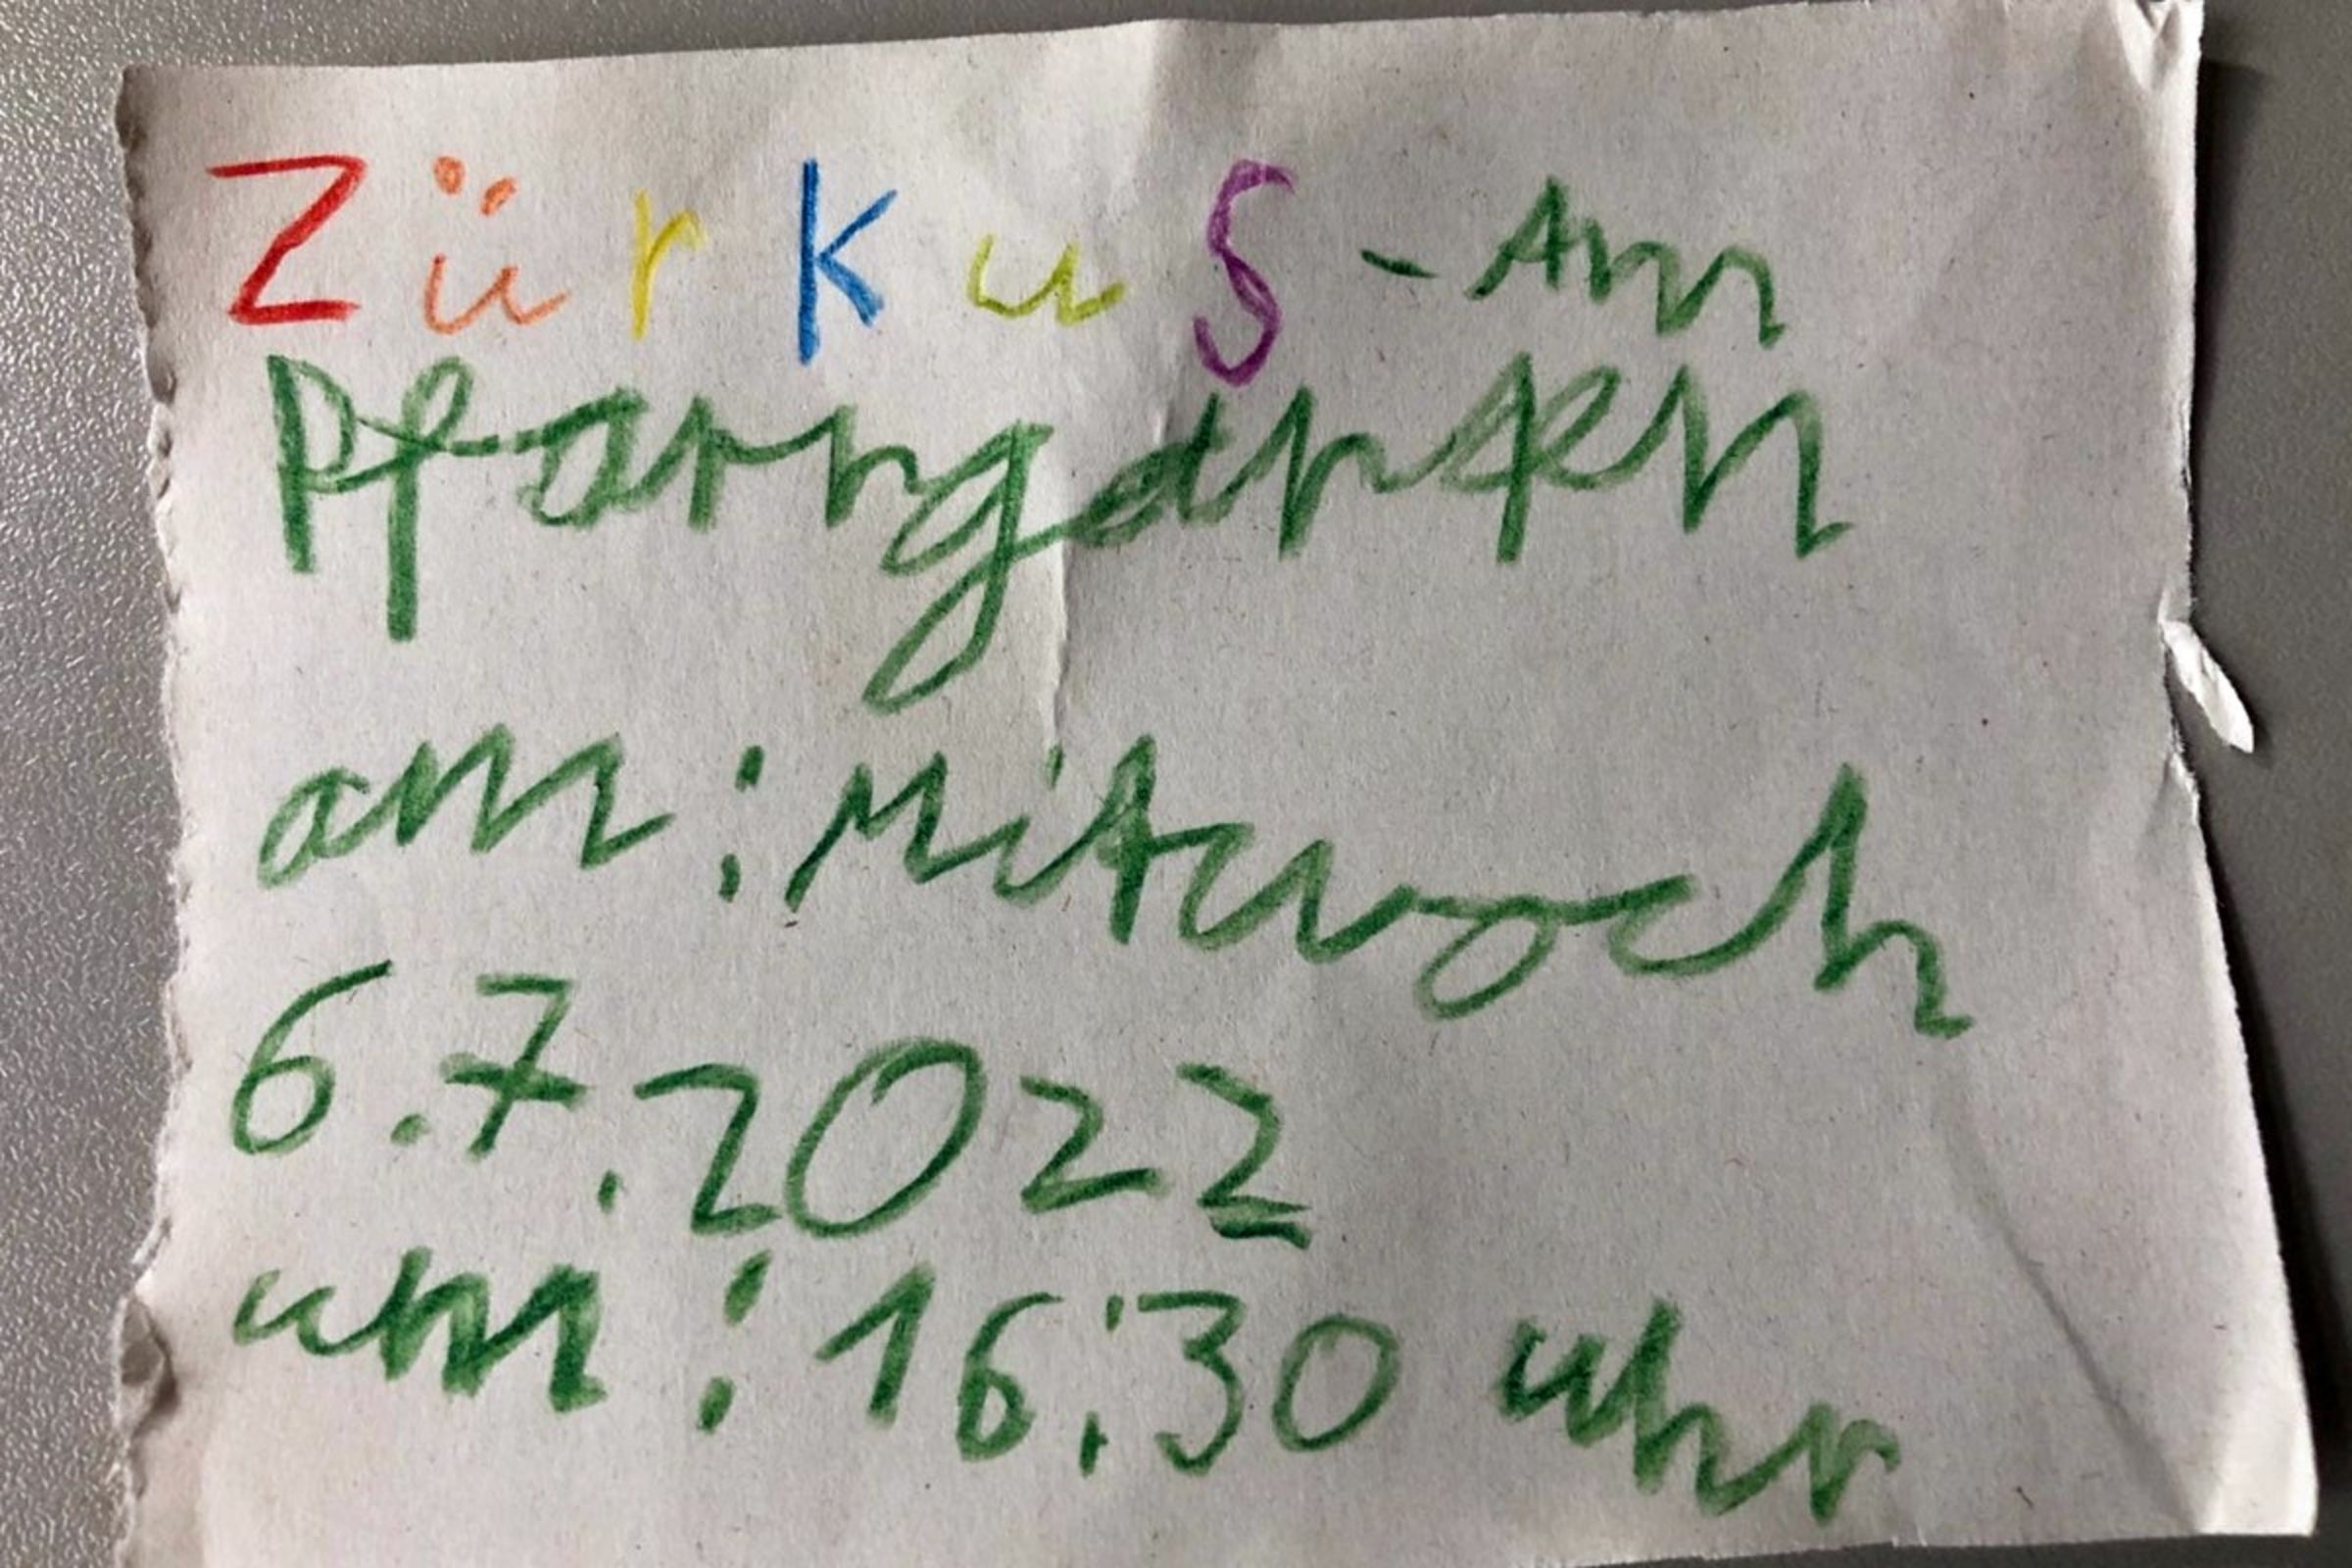 Zürkus - Am
Pfarrgarten
am: Mitwoch
6.7.2022
um: 16:30 uhr